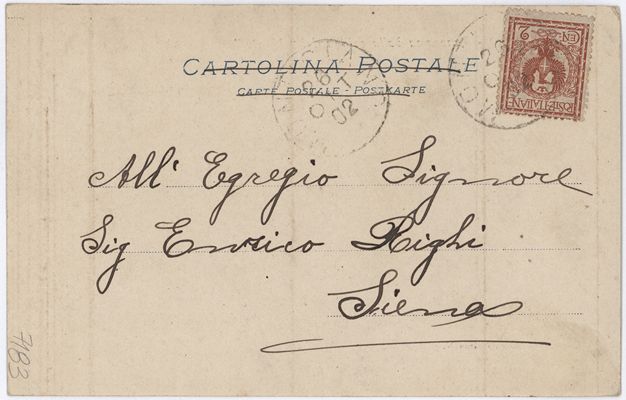 CARTOLINA POSTALE
CARTE POSTALE - POSTKARTE
26
OTT
02
POSTE ITALIANE
CEN 2
All' Egregio Signore
Sig Enrico Righi
Siena
7183